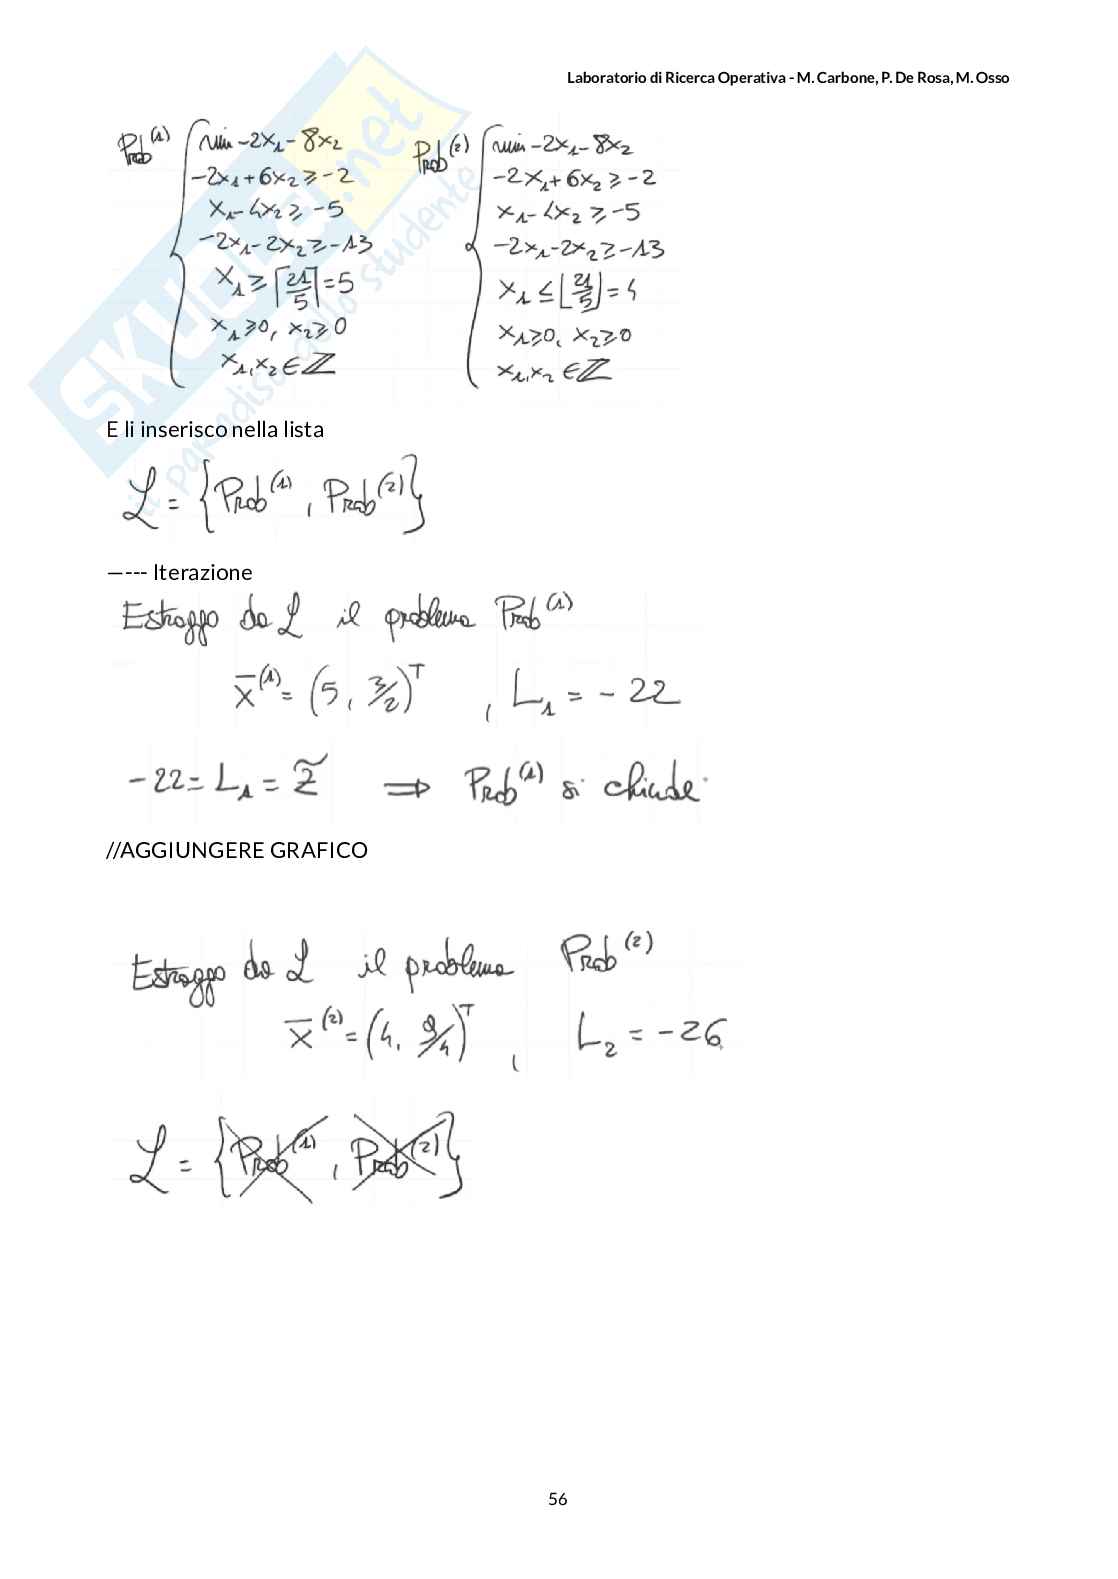 Laboratorio di Ricerca Operativa - M. Carbone, P. De Rosa, M. Osso
SKUOLA.net
il paradiso dello studente
Prob⁽¹⁾ { min -2x₁ - 8x₂
-2x₁ + 6x₂ ≥ -2
x₁ - 4x₂ ≥ -5
-2x₁ - 2x₂ ≥ -13
x₁ ≥ ⌈21/5⌉ = 5
x₁ ≥ 0, x₂ ≥ 0
x₁, x₂ ∈ ℤ
Prob⁽²⁾ { min -2x₁ - 8x₂
-2x₁ + 6x₂ ≥ -2
x₁ - 4x₂ ≥ -5
-2x₁ - 2x₂ ≥ -13
x₁ ≤ ⌊21/5⌋ = 4
x₁ ≥ 0, x₂ ≥ 0
x₁, x₂ ∈ ℤ
E li inserisco nella lista
ℒ = {Prob⁽¹⁾, Prob⁽²⁾}
—--- Iterazione
Estraggo da ℒ il problema Prob⁽¹⁾
x̄⁽¹⁾ = (5, 3/2)ᵀ , L₁ = -22
-22 = L₁ = z̃ ⇒ Prob⁽¹⁾ si chiude
//AGGIUNGERE GRAFICO
Estraggo da ℒ il problema Prob⁽²⁾
x̄⁽²⁾ = (4, 9/4)ᵀ , L₂ = -26
ℒ = {Prob⁽¹⁾, Prob⁽²⁾}
56